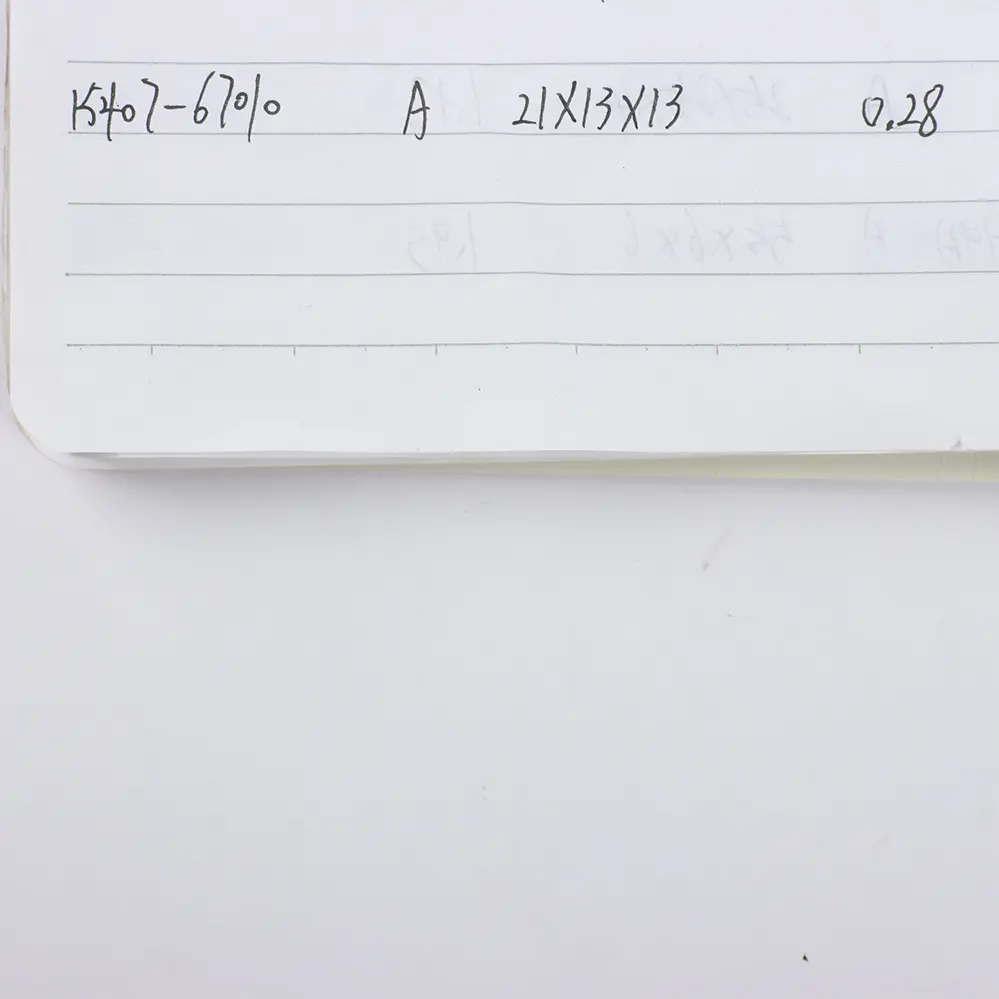 15407-67010 A 21X13X13 0.28